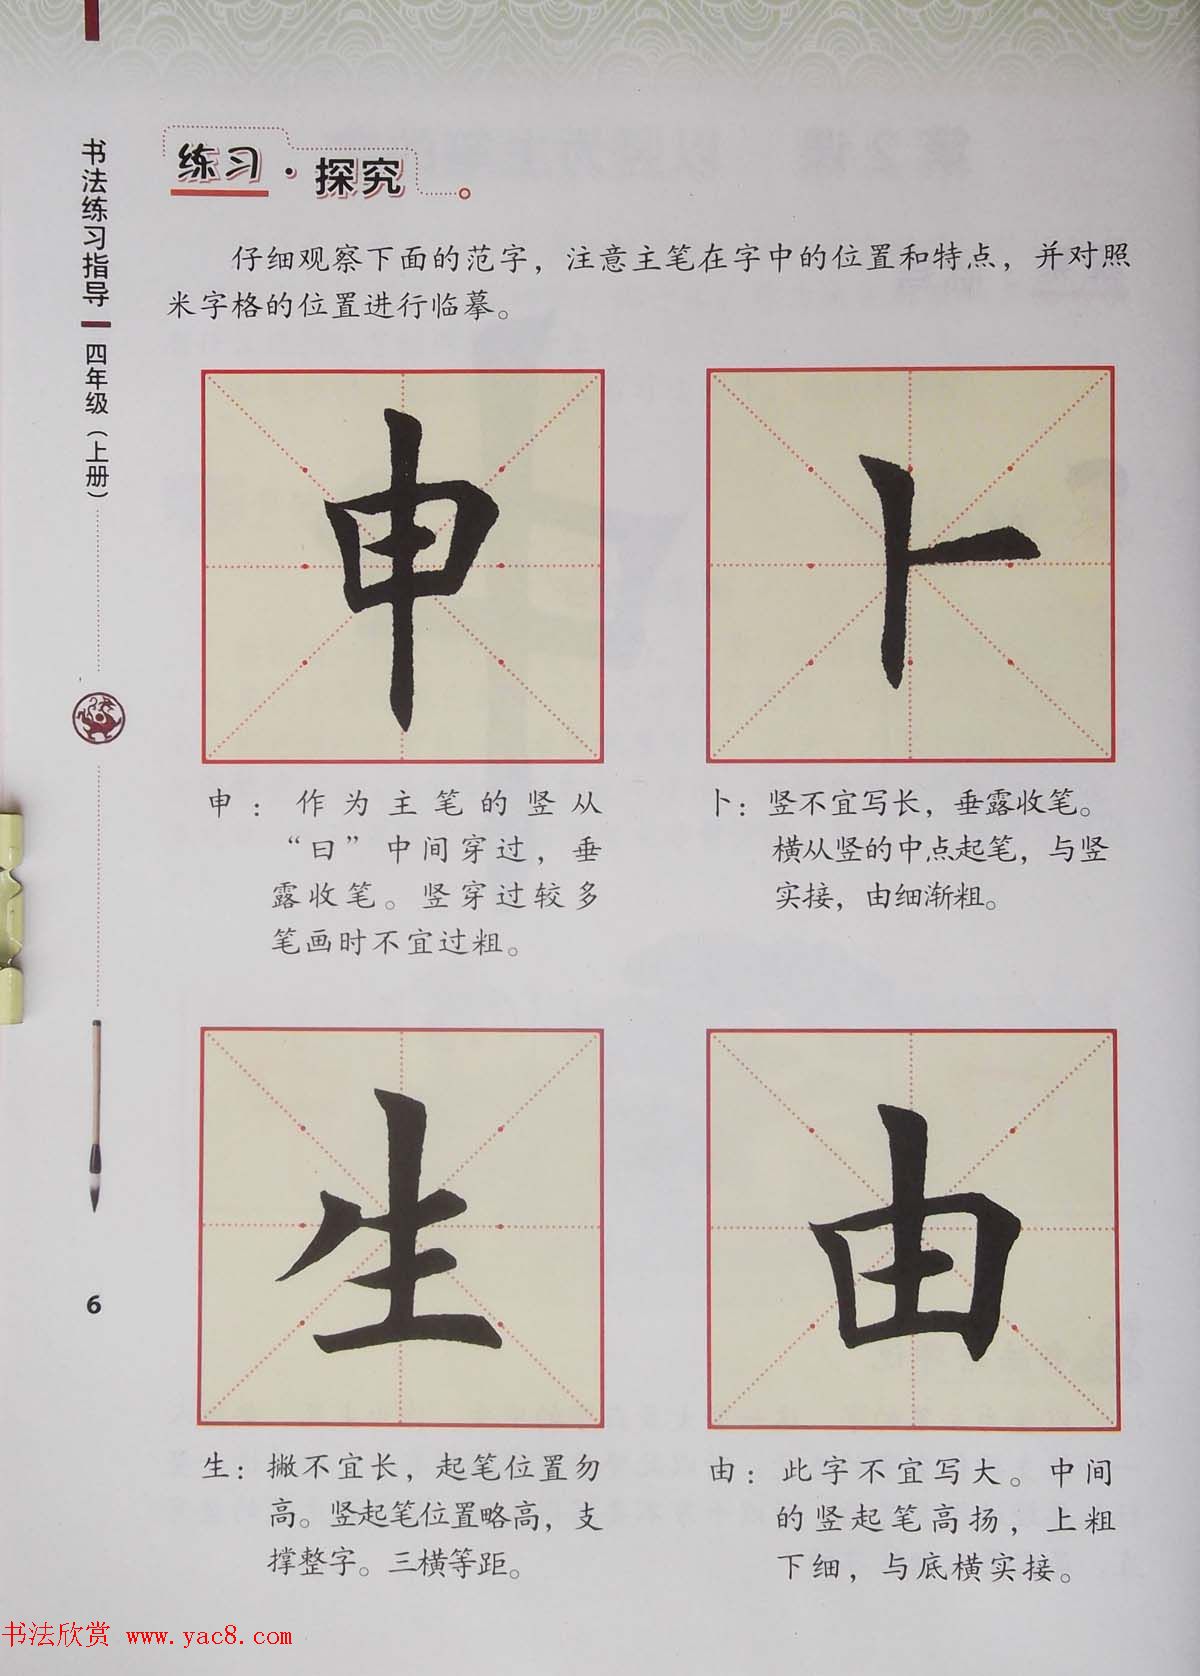 书法练习指导 四年级（上册）
练习·探究
仔细观察下面的范字，注意主笔在字中的位置和特点，并对照
米字格的位置进行临摹。
申
卜
申：作为主笔的竖从
“曰”中间穿过，垂
露收笔。竖穿过较多
笔画时不宜过粗。
卜：竖不宜写长，垂露收笔。
横从竖的中点起笔，与竖
实接，由细渐粗。
生
由
生：撇不宜长，起笔位置勿
高。竖起笔位置略高，支
撑整字。三横等距。
由：此字不宜写大。中间
的竖起笔高扬，上粗
下细，与底横实接。
6
书法欣赏 www.yac8.com